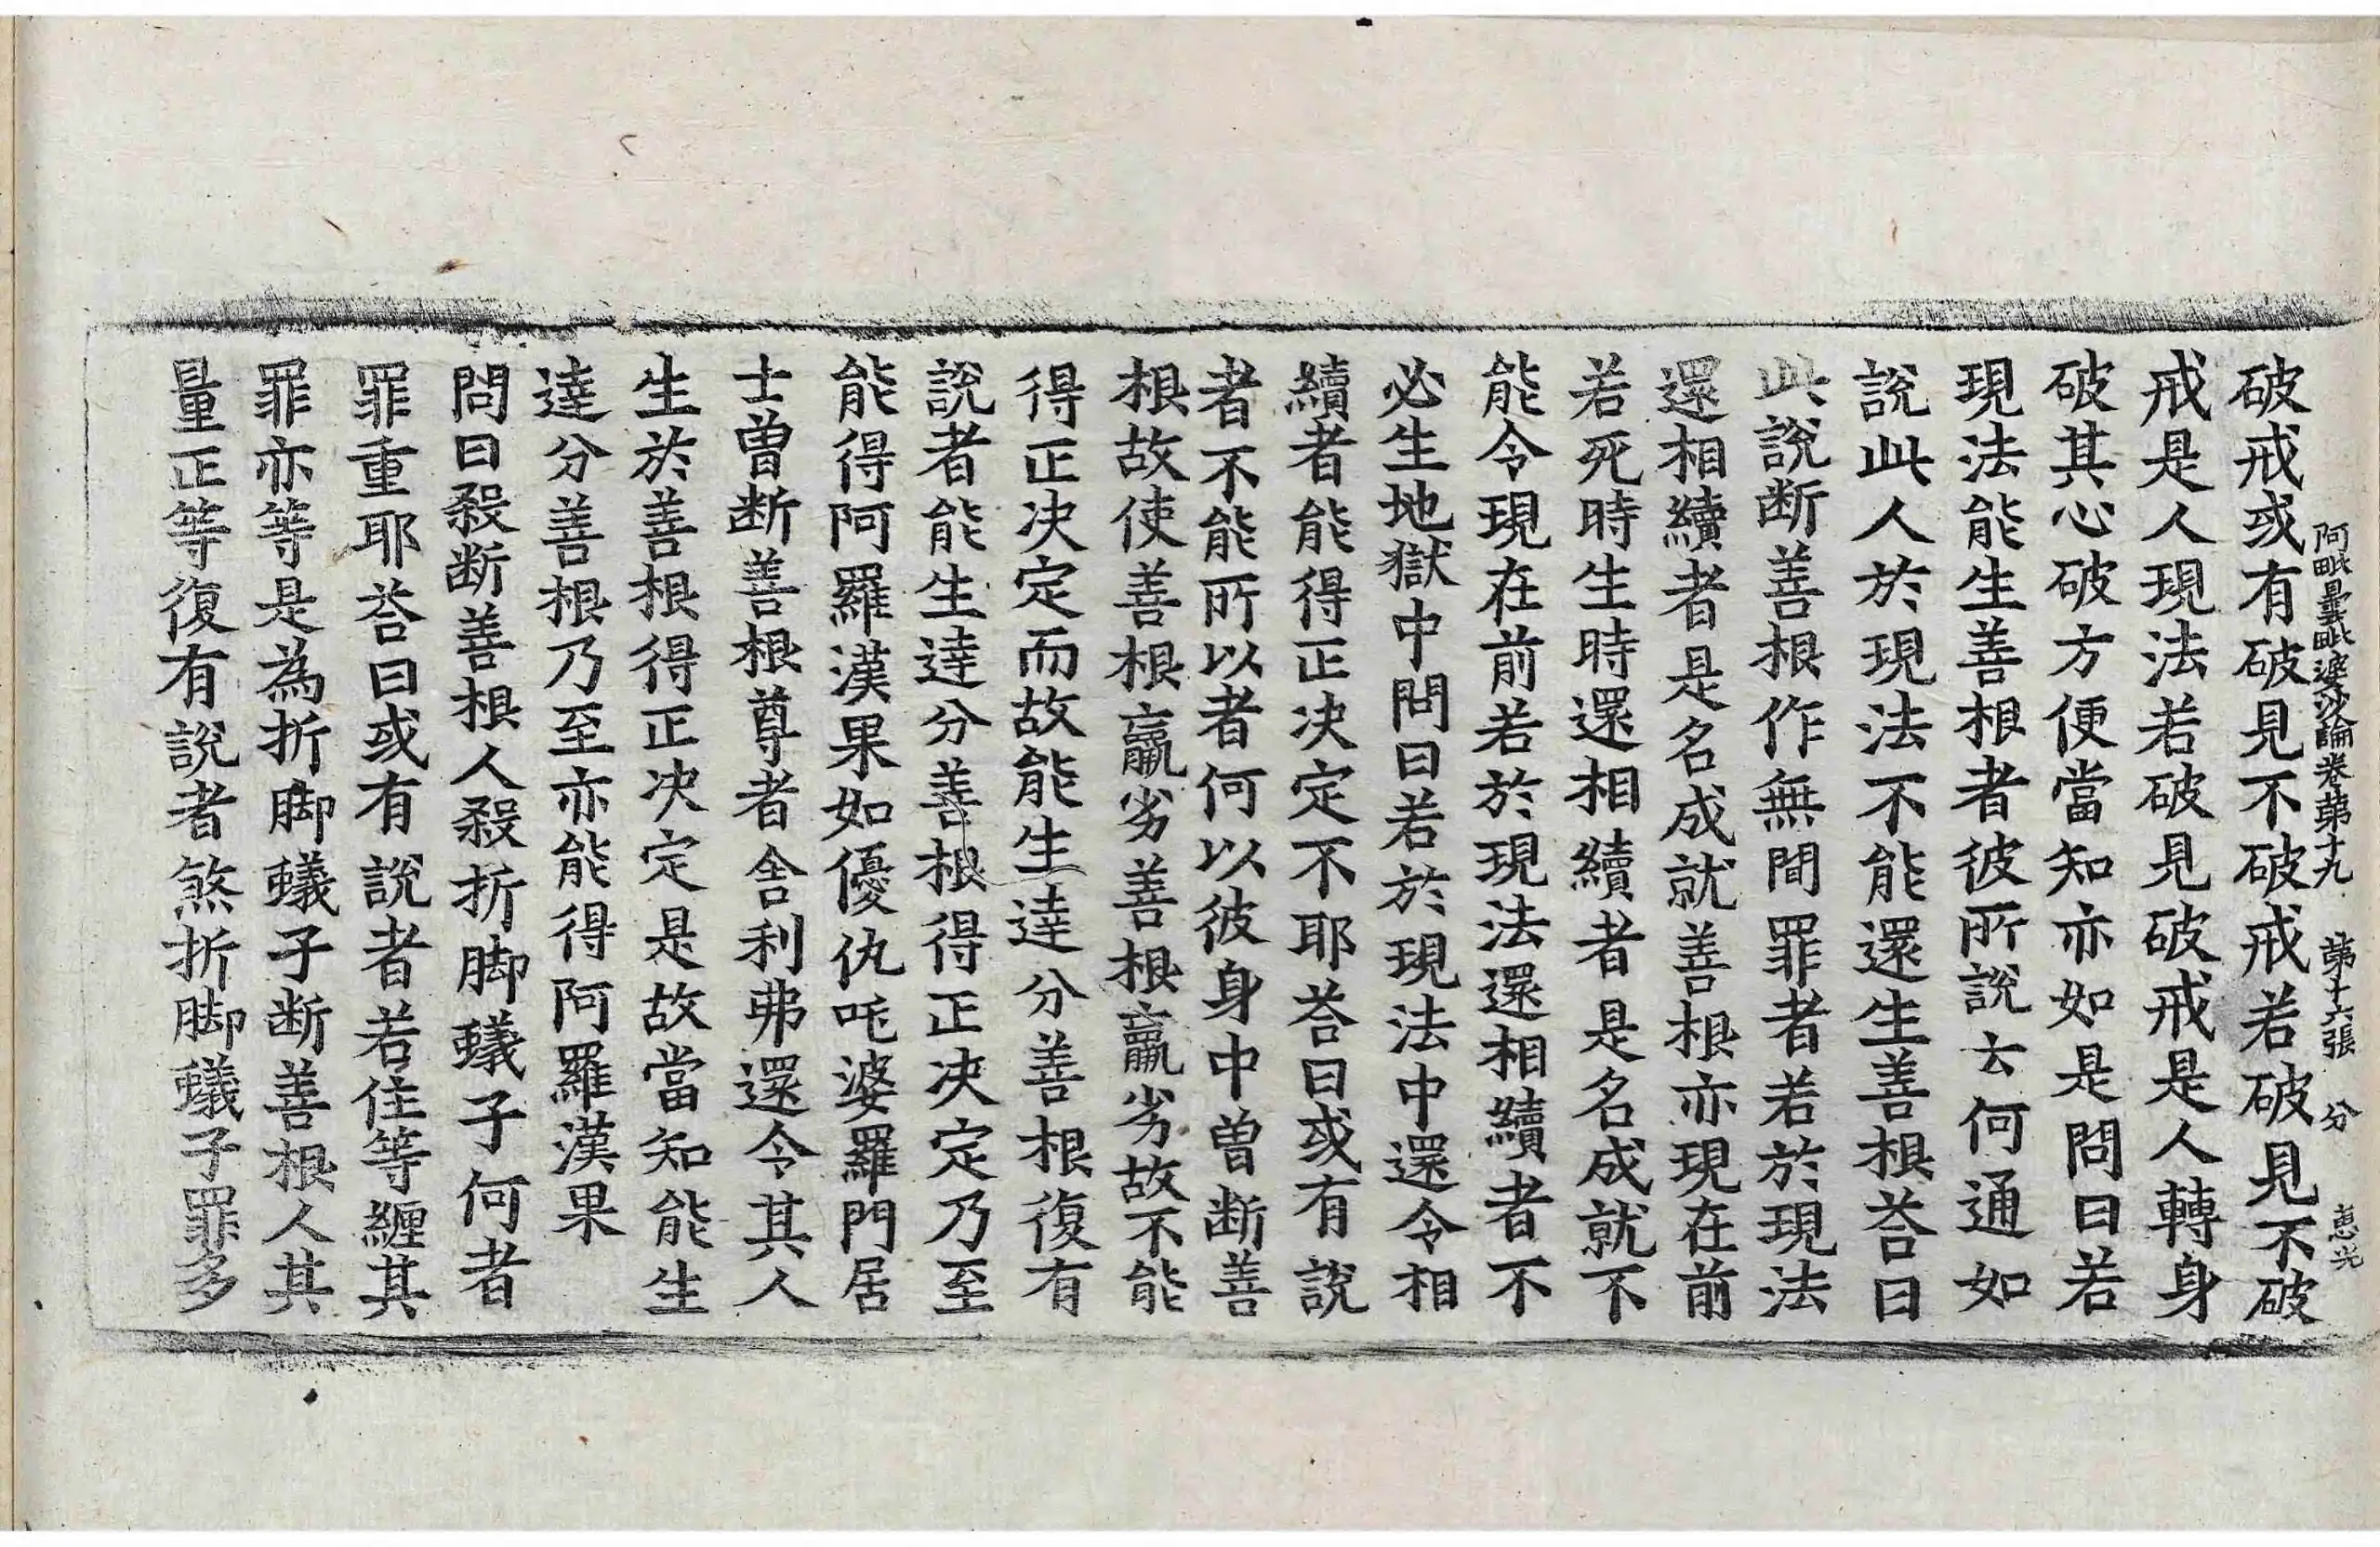 阿毗曇毗婆沙論卷第十九 第十六張 分 惠光
破戒或有破見不破戒若破見不破
戒是人現法若破見破戒是人轉身
破其心破方便當知亦如是問曰若
現法能生善根者彼所說云何通如
說此人於現法不能還生善根荅曰
此說断善根作無間罪者若於現法
還相續者是名成就善根亦現在前
若死時生時還相續者是名成就不
能令現在前若於現法還相續者不
必生地獄中問曰若於現法中還令相
續者能得正决定不耶荅曰或有說
者不能所以者何以彼身中曽断善
根故使善根羸劣善根羸劣故不能
得正决定而故能生達分善根復有
說者能生達分善根得正决定乃至
能得阿羅漢果如優仇咤婆羅門居
士曽断善根尊者舎利弗還令其人
生於善根得正决定是故當知能生
達分善根乃至亦能得阿羅漢果
問曰殺断善根人殺折脚蟻子何者
罪重耶荅曰或有說者若住等纏其
罪亦等是為折脚蟻子断善根人其
量正等復有說者煞折脚蟻子罪多